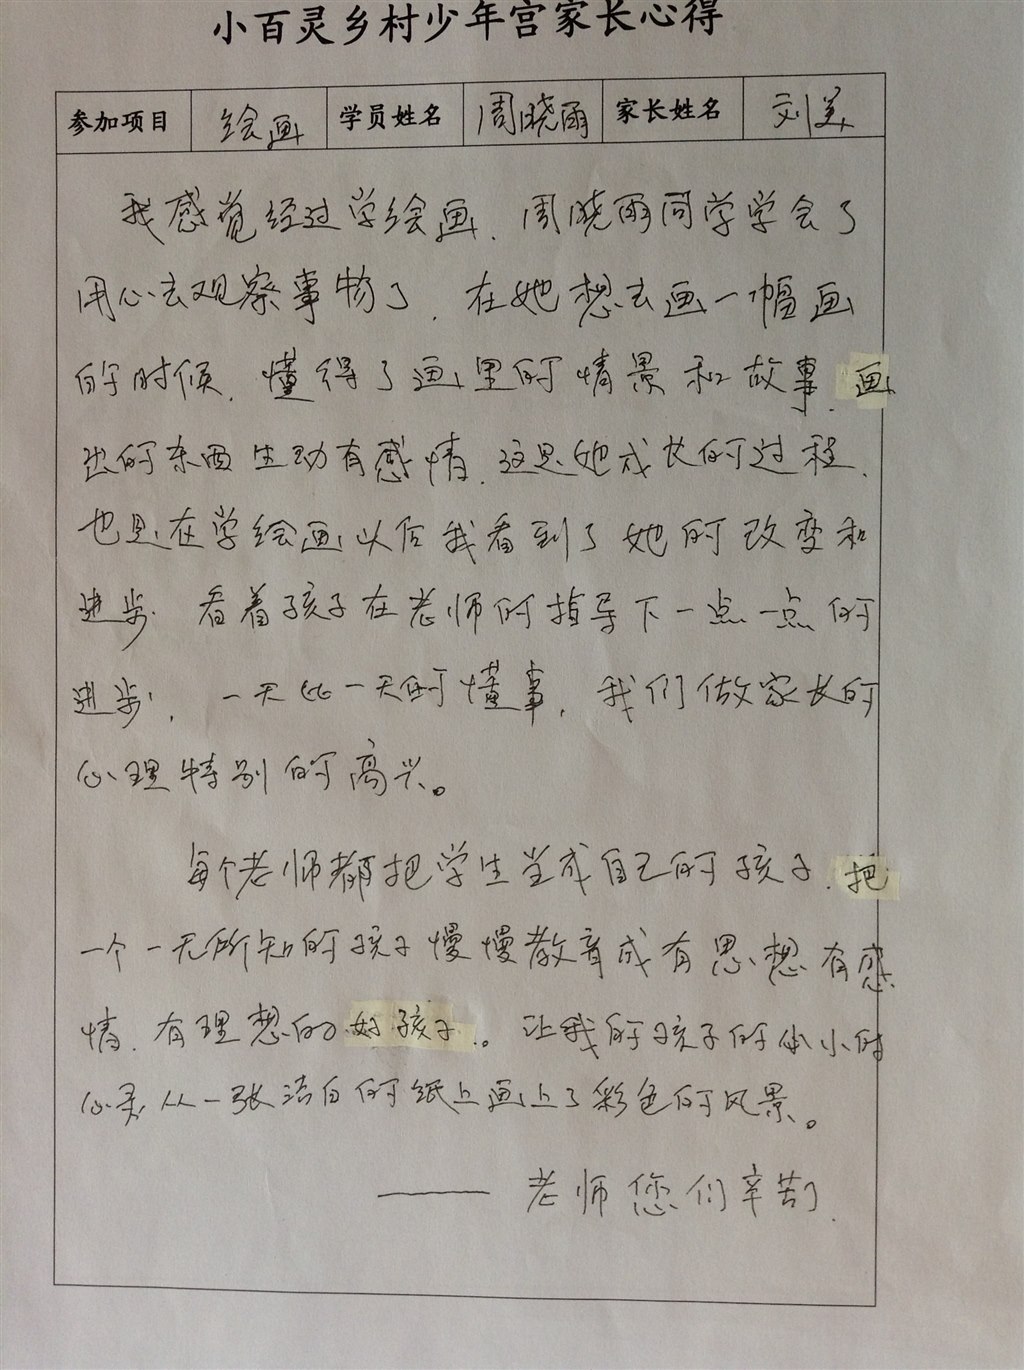 小百灵乡村少年宫家长心得
参加项目 绘画 学员姓名 周晓雨 家长姓名 刘美
我感觉经过学绘画、周晓雨同学学会了
用心去观察事物了、在她想去画一幅画
的时候、懂得了画里的情景和故事、画
出的东西生动有感情、这是她成长的过程、
也是在学绘画以后我看到了她的改变和
进步、看着孩子在老师的指导下一点一点的
进步、一天比一天的懂事、我们做家长的
心理特别的高兴。
每个老师都把学生当成自己的孩子、把
一个一无所知的孩子慢慢教育成有思想有感
情、有理想的好孩子。让我的孩子的小小的
心灵从一张洁白的纸上画上了彩色的风景。
——老师您们辛苦了